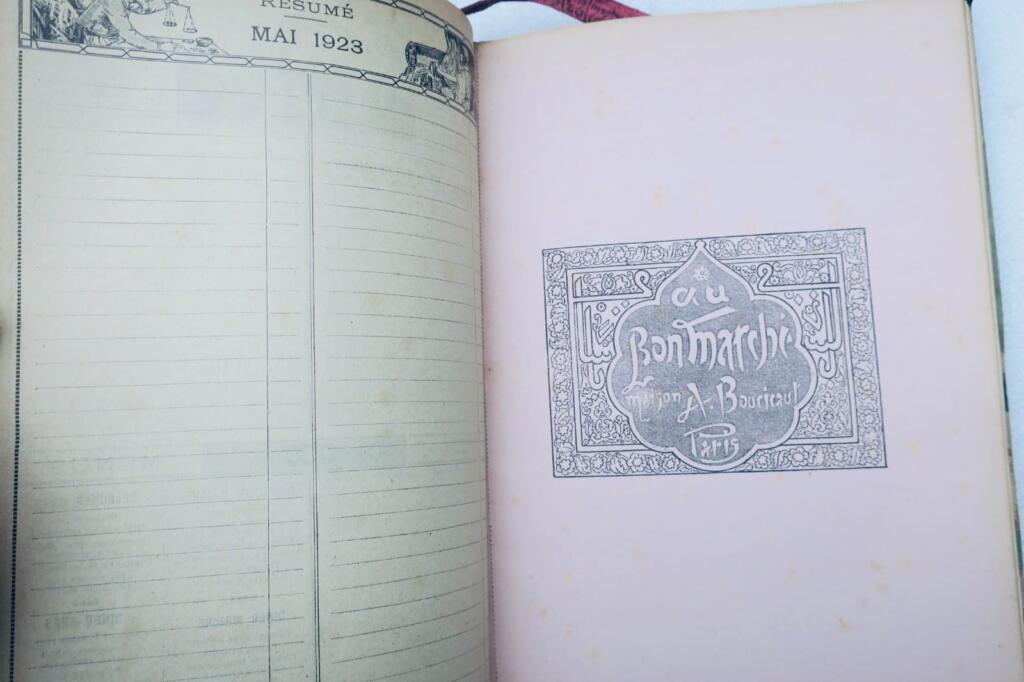 RÉSUMÉ
MAI 1923
au
Bon Marché
maison A. Boucicaut
Paris